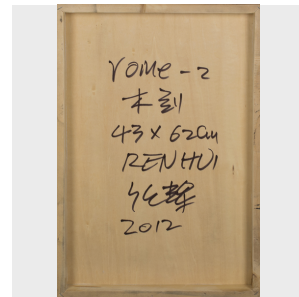 rome-2
木刻
43×62cm
REN HUI
2012